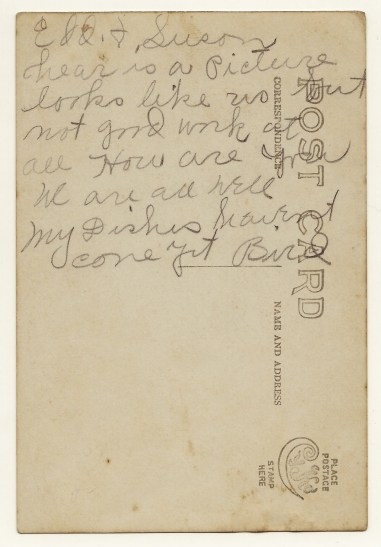 Ed & Susan
hear is a Picture
looks like us but
not good work at
all How are you
We are all well
My Dishes havent
come yet Bird
POST CARD
CORRESPONDENCE
NAME AND ADDRESS
PLACE
POSTAGE
STAMP
HERE